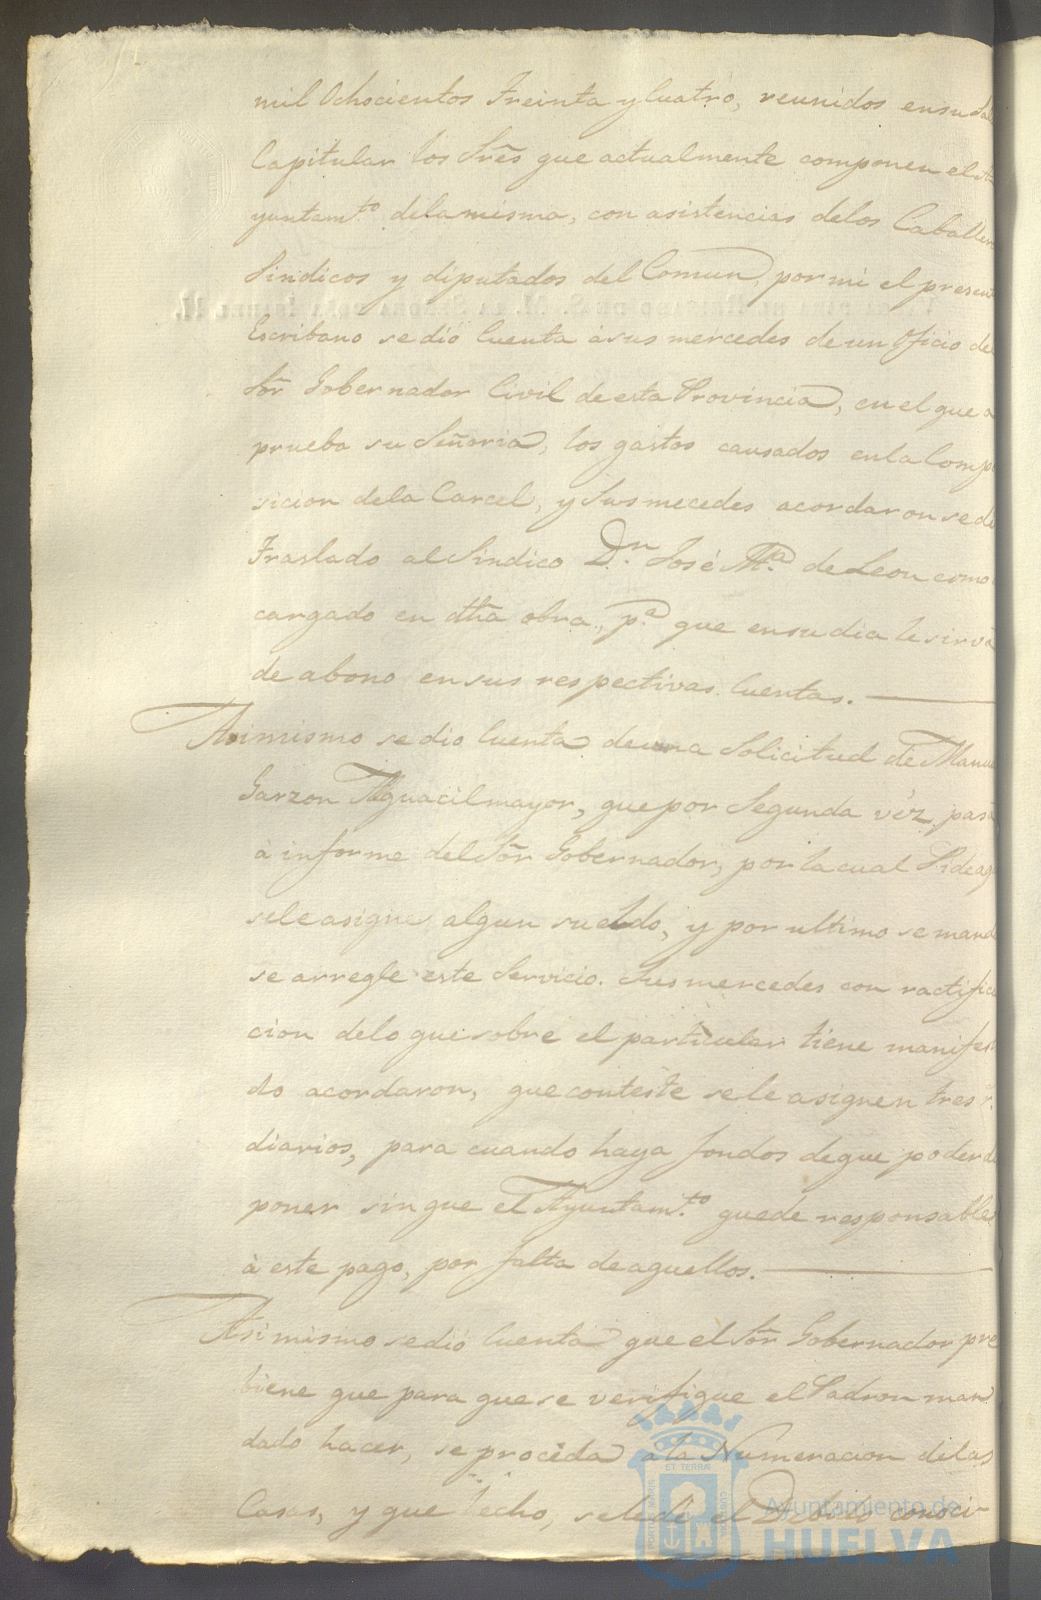 mil Ochocientos Treinta y Cuatro, reunidos en su Sal
Capitular los Sres que actualmente componen el A
yuntam.to dela misma, con asistencias delos Caballer
Sindicos y diputados del Comun, por mi el present
Escribano se dió Cuenta á sus mercedes de un Oficio de
Sor Gobernador Civil de esta Provincia, en el que a
prueba su Señoria, los gastos causados en la Comp
sicion dela Carcel, y Sus mecedes acordaron se de
Traslado al Sindico Dn. José Ma. de Leon como
cargado en dha obra, pa. que en su dia le sirva
de abono en sus respectivas Cuentas.
Asimismo se dio Cuenta de una Solicitud de Manu
Garzon Alguacil mayor, que por Segunda véz pasa
à informe del Sor Gobernador, por la cual
se le asigne algun sueldo, y por ultimo se mand
se arregle este Servicio. Sus mercedes con ractifica
cion delo que sobre el particular tiene manifes
do acordaron, que conteste se le asignen tres r.
diarios, para cuando haya fondos de que poder di
poner sin que el Ayuntam.to quede responsable
à este pago, por falta de aquellos.
Asimismo se dió Cuenta que el Sor Gobernador pre
biene que para que se verifique el Padron man
dado hacer, se procéda a la Numeracion delas
Casas, y que hecho, se le dé el Debido conoci-
PORTUS MARIS
ET TERRAE
CUSTODIA
Ayuntamiento de
HUELVA